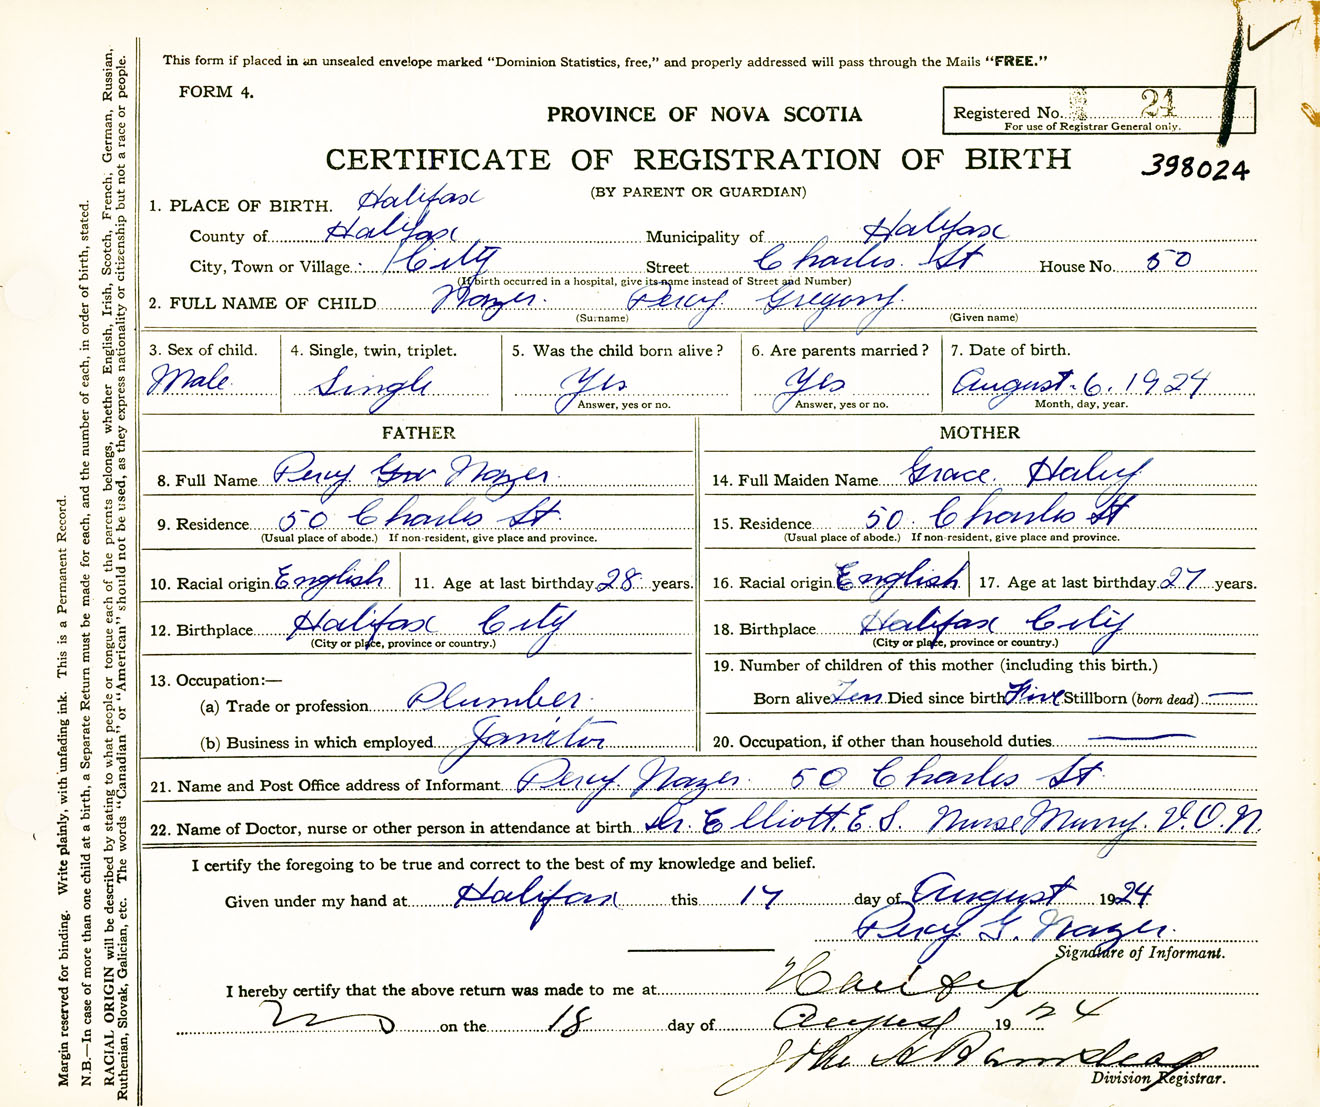 This form if placed in an unsealed envelope marked "Dominion Statistics, free," and properly addressed will pass through the Mails "FREE."
FORM 4.
PROVINCE OF NOVA SCOTIA
Registered No. 21
For use of Registrar General only.
CERTIFICATE OF REGISTRATION OF BIRTH
398024
(BY PARENT OR GUARDIAN)
1. PLACE OF BIRTH. Halifax
County of Halifax Municipality of Halifax
City, Town or Village City Street Charles St House No. 50
(If birth occurred in a hospital, give its name instead of Street and Number)
2. FULL NAME OF CHILD Nozer Percy Gregory
(Surname) (Given name)
3. Sex of child. 4. Single, twin, triplet. 5. Was the child born alive? 6. Are parents married? 7. Date of birth.
Male Single Yes Yes August. 6. 1924
Answer, yes or no. Answer, yes or no. Month, day, year.
FATHER MOTHER
8. Full Name Percy Nozer 14. Full Maiden Name Grace Haley
9. Residence 50 Charles St. 15. Residence 50 Charles St
(Usual place of abode.) If non-resident, give place and province. (Usual place of abode.) If non-resident, give place and province.
10. Racial origin English 11. Age at last birthday 28 years. 16. Racial origin English 17. Age at last birthday 27 years.
12. Birthplace Halifax City 18. Birthplace Halifax City
(City or place, province or country.) (City or place, province or country.)
13. Occupation:— 19. Number of children of this mother (including this birth.)
(a) Trade or profession Plumber Born alive Ten Died since birth Five Stillborn (born dead) —
(b) Business in which employed Janitor 20. Occupation, if other than household duties —
21. Name and Post Office address of Informant Percy Nozer 50 Charles St
22. Name of Doctor, nurse or other person in attendance at birth Dr. Elliott. E. S. Nurse Murry. V. O. N.
I certify the foregoing to be true and correct to the best of my knowledge and belief.
Given under my hand at Halifax this 17 day of August 1924
Percy G. Nozer
Signature of Informant.
I hereby certify that the above return was made to me at Halifax
on the 18 day of August 1924
Division Registrar.
Margin reserved for binding. Write plainly, with unfading ink. This is a Permanent Record.
N.B.—In case of more than one child at a birth, a Separate Return must be made for each, and the number of each, in order of birth, stated.
RACIAL ORIGIN will be described by stating to what people or tongue each of the parents belongs, whether English, Irish, Scotch, French, German, Russian,
Ruthenian, Slovak, Galician, etc. The words "Canadian" or "American" should not be used, as they express nationality or citizenship but not a race or people.